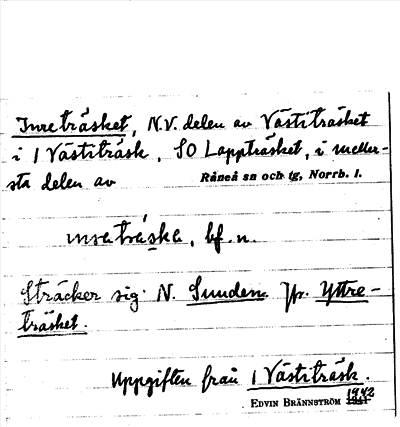 Inreträsket, N.V. delen av Västiträsket
i 1 Västiträsk, SO Lappträsket, i meller-
sta delen av Råneå sn och tg, Norrb. l.
insətráska, bf. n.
Sträcker sig N. Sunden. Jfr. Yttre-
träsket.
Uppgiften från 1 Västiträsk.
EDVIN BRÄNNSTRÖM 1942